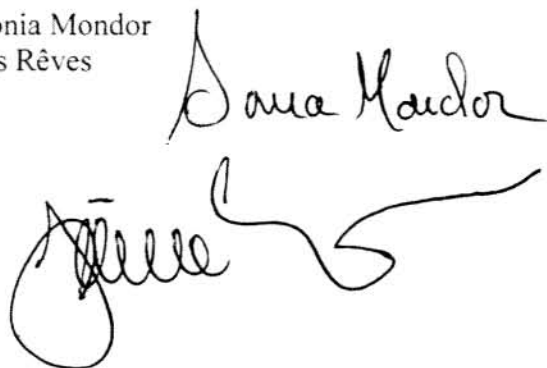 onia Mondor
s Rêves
Sonia Mondor